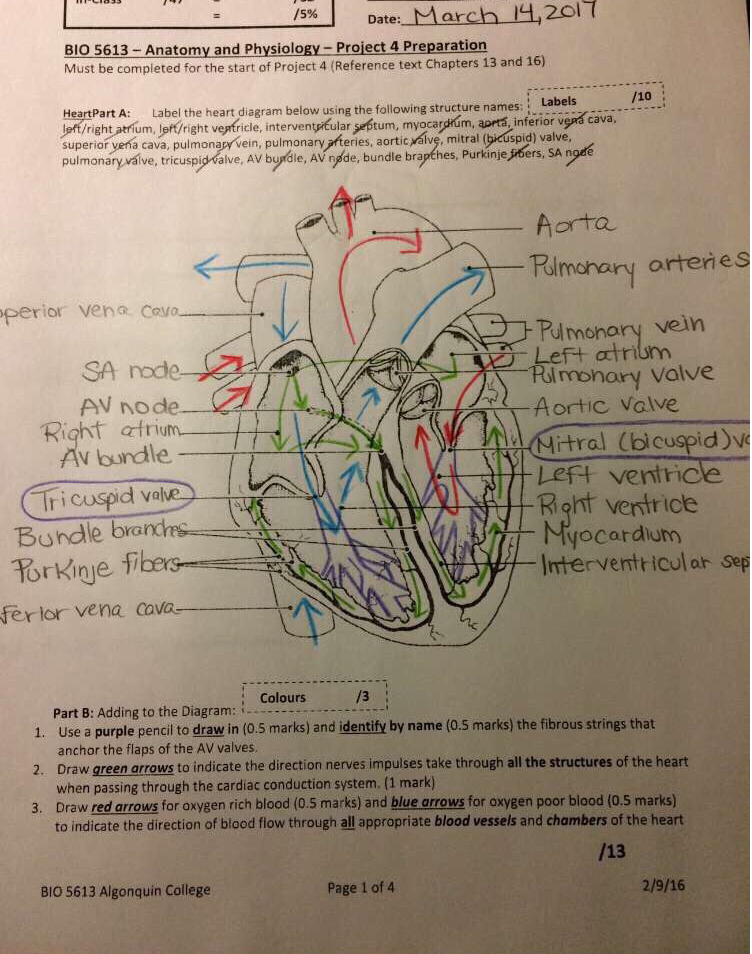 /47 =
= /5%
Date: March 14, 2017
BIO 5613 – Anatomy and Physiology – Project 4 Preparation
Must be completed for the start of Project 4 (Reference text Chapters 13 and 16)
Labels /10
HeartPart A: Label the heart diagram below using the following structure names:
left/right atrium, left/right ventricle, interventricular septum, myocardium, aorta, inferior vena cava,
superior vena cava, pulmonary vein, pulmonary arteries, aortic valve, mitral (bicuspid) valve,
pulmonary valve, tricuspid valve, AV bundle, AV node, bundle branches, Purkinje fibers, SA node
Aorta
Pulmonary arteries
perior vena cava
Pulmonary vein
Left atrium
SA node
Pulmonary valve
AV node
Aortic valve
Right atrium
Mitral (bicuspid) va
AV bundle
Left ventricle
Tricuspid valve
Right ventricle
Bundle branches
Myocardium
Purkinje fibers
Interventricular sep
ferior vena cava
Colours /3
Part B: Adding to the Diagram:
1. Use a purple pencil to draw in (0.5 marks) and identify by name (0.5 marks) the fibrous strings that
anchor the flaps of the AV valves.
2. Draw green arrows to indicate the direction nerves impulses take through all the structures of the heart
when passing through the cardiac conduction system. (1 mark)
3. Draw red arrows for oxygen rich blood (0.5 marks) and blue arrows for oxygen poor blood (0.5 marks)
to indicate the direction of blood flow through all appropriate blood vessels and chambers of the heart
/13
BIO 5613 Algonquin College
Page 1 of 4
2/9/16